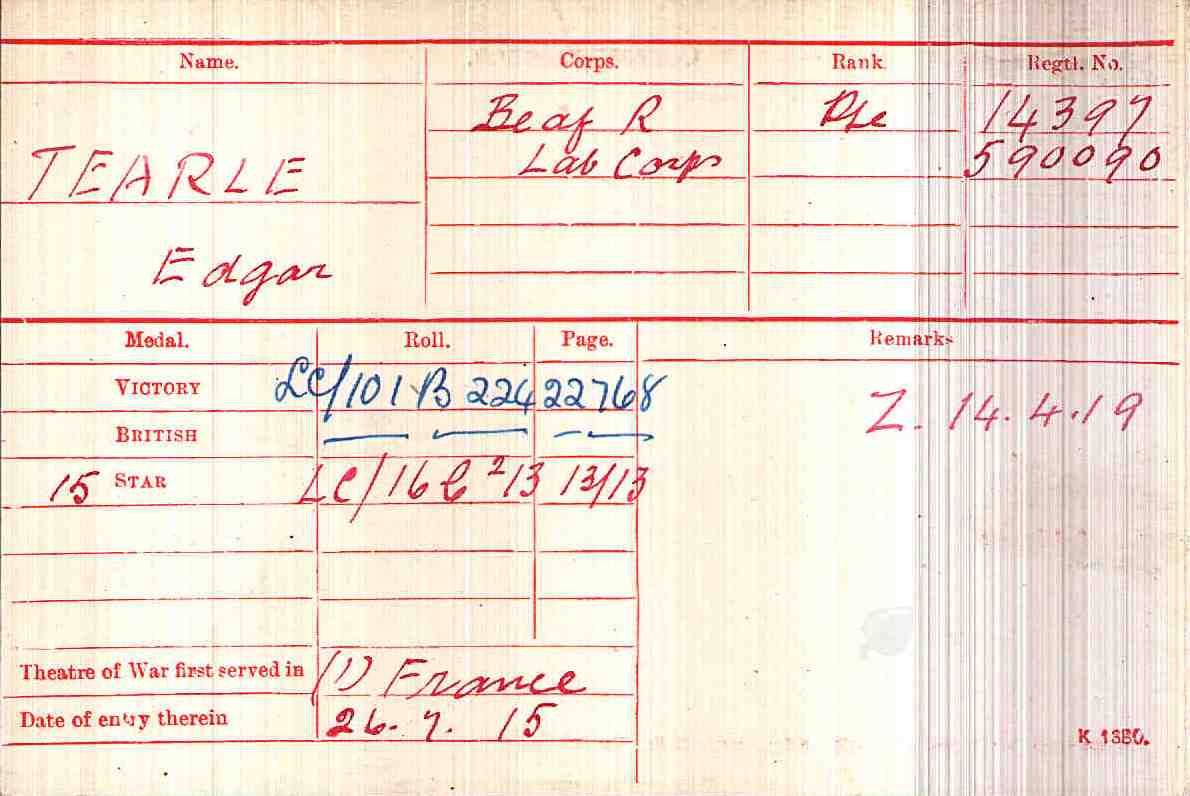 Name. Corps. Rank Regtl. No.
TEARLE Beaf R Pte 14397
Lab Corps 590090
Edgar
Medal. Roll. Page. Remarks
VICTORY LC/101 B 224 22768
BRITISH Z. 14.4.19
15 STAR LC/16 C² 13 13/13
Theatre of War first served in (1) France
Date of entry therein 26. 7. 15
K 1380.